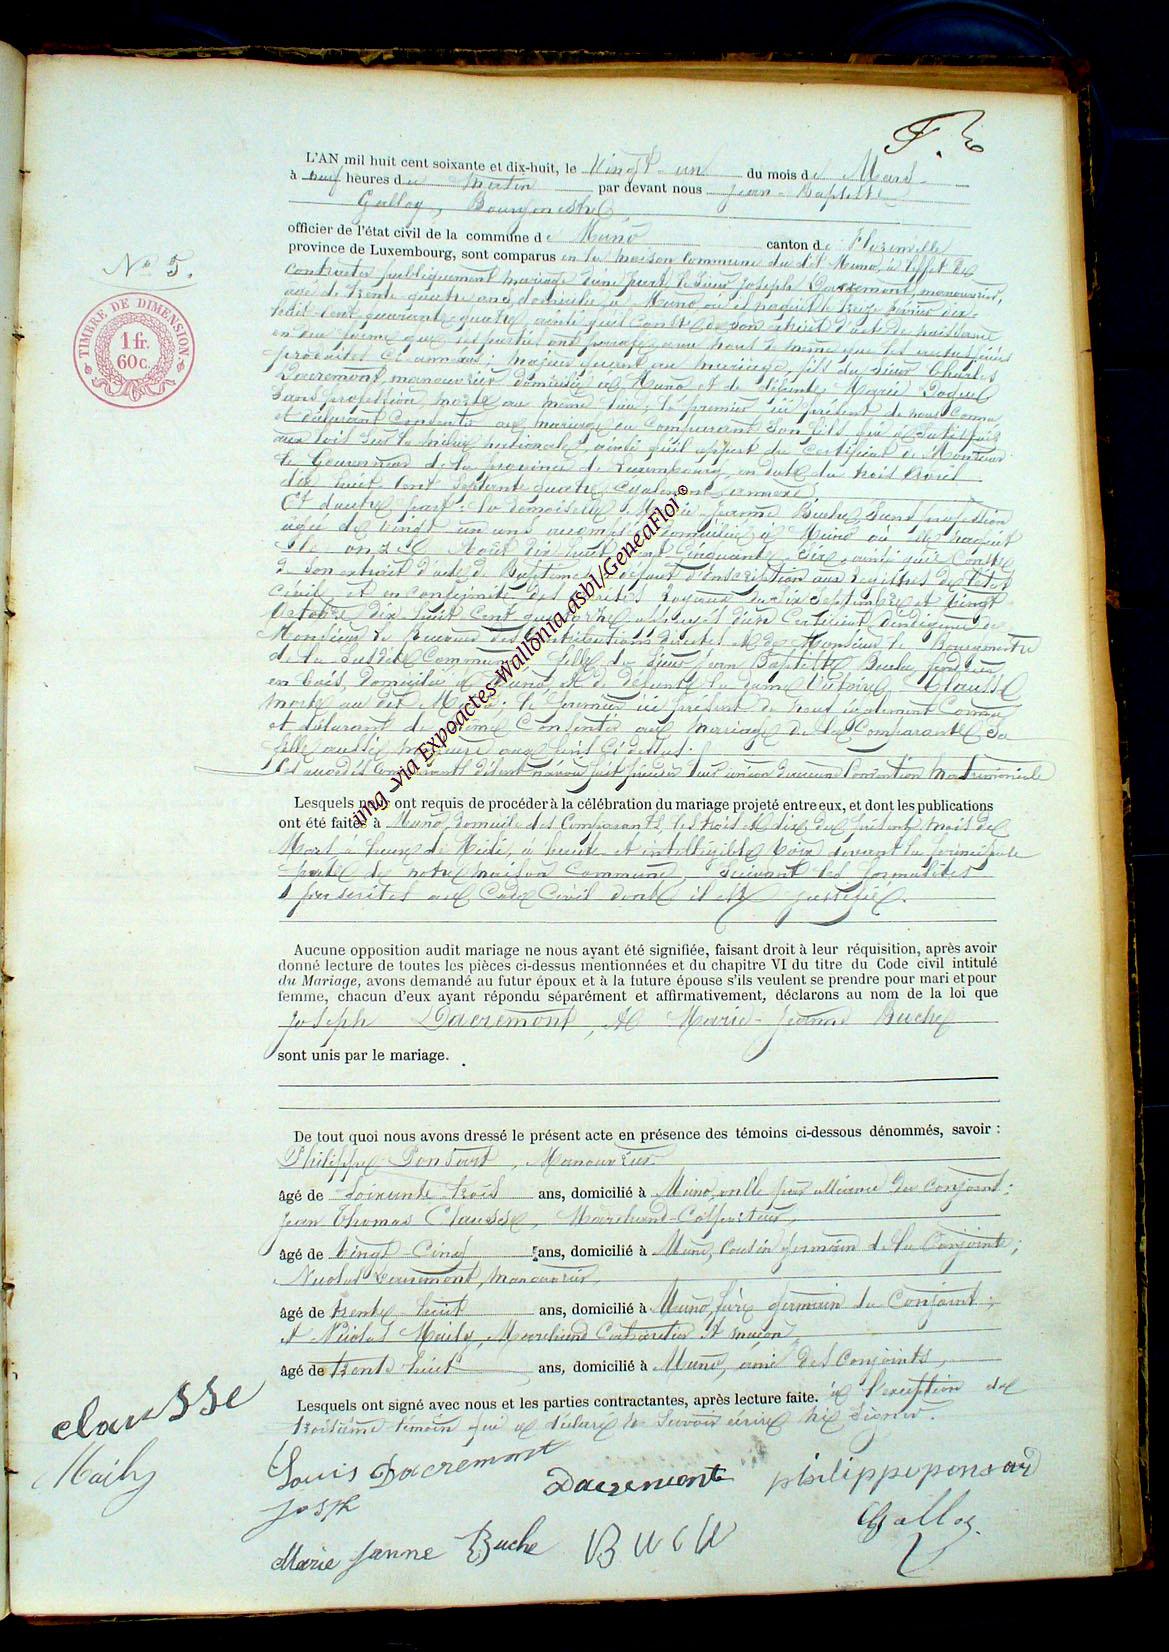 L'AN mil huit cent soixante et dix-huit, le Vingt-un du mois de Mars
à neuf heures du matin par devant nous Jean-Baptiste
Galloy, Bourgmestre
officier de l'état civil de la commune de Muno canton de Florenville
province de Luxembourg, sont comparus en la maison commune du dit Muno, à l'effet de
N° 5.
TIMBRE DE DIMENSION
1 fr.
60 c.
contracter publiquement mariage d'une part le sieur Joseph Dacremont, manouvrier,
âgé de trente-quatre ans, domicilié à Muno où il naquit le treize février dix-
huit-cent quarante-quatre, ainsi qu'il conste de son extrait d'acte de naissance
en due forme que les parties ont paraphé avec nous de même que les autres pièces
produites ci-annexées; majeur quant au mariage, fils du sieur Charles
Dacremont, manouvrier domicilié à Muno et de défunte Marie
sans profession morte au même lieu; le premier ici présent de nous connu
et déclarant consentir au mariage du comparant son fils qui a satisfait
aux lois sur la milice nationale, ainsi qu'il appert du certificat de Monsieur
le Gouverneur de la province de Luxembourg, en date du trois Avril
dix huit cent septante quatre également annexé;
Et d'autre part: la demoiselle Marie-Jeanne Buche, sans profession
âgée de vingt un ans accomplis domiciliée à Muno où elle naquit
le onze Août dix huit cent cinquante six, ainsi qu'il conste
de son extrait d'acte de Baptême à défaut d'inscription aux registres de l'état
civil, et en conformité des arrêtés royaux du dix septembre et vingt
octobre dix huit cent quatorze, appuyés d'un certificat d'indigence de
Monsieur le Receveur des Contributions directes et de Monsieur le Bourgmestre
de la susdite commune, fille du sieur Jean Baptiste Buche,
en bois, domicilié à Muno et de défunte la dame Victoire Clausse
morte au dit Muno: le premier ici présent de nous également connu
et déclarant de même consentir au mariage de la comparante sa
fille aussi majeure aux fins ci-dessus.
Les susdits comparants disent n'avoir fait précéder leur union d'aucune convention matrimoniale
Lesquels nous ont requis de procéder à la célébration du mariage projeté entre eux, et dont les publications
ont été faites à Muno, domicile des comparants, les trois et dix du présent mois de
Mars à heure de Midi, à haute et intelligible voix devant la principale
porte de notre maison commune, suivant les formalités
prescrites au Code Civil dont il est justifié.
Aucune opposition audit mariage ne nous ayant été signifiée, faisant droit à leur réquisition, après avoir
donné lecture de toutes les pièces ci-dessus mentionnées et du chapitre VI du titre du Code civil intitulé
du Mariage, avons demandé au futur époux et à la future épouse s'ils veulent se prendre pour mari et pour
femme, chacun d'eux ayant répondu séparément et affirmativement, déclarons au nom de la loi que
Joseph Dacremont, et Marie-Jeanne Buche
sont unis par le mariage.
De tout quoi nous avons dressé le présent acte en présence des témoins ci-dessous dénommés, savoir :
Philippe Ponsart, Manouvrier
âgé de Soixante-trois ans, domicilié à Muno, oncle par alliance du conjoint;
Jean Thomas Clausse, Marchand-Colporteur,
âgé de Vingt-Cinq ans, domicilié à Muno, cousin germain de la conjointe;
Nicolas Dacremont, manouvrier
âgé de trente-huit ans, domicilié à Muno, frère germain du conjoint;
et Nicolas Maily, Marchand Cabaretier et maçon,
âgé de trente huit ans, domicilié à Muno, ami des conjoints,
Lesquels ont signé avec nous et les parties contractantes, après lecture faite. à l'exception du
troisième témoin qui a déclaré ne savoir écrire ni signer.
clausse
Maily
Louis Dacremont
Joseph
Dacremont
philippe ponsard
Galloy
Marie Janne Buche
Buche
img via Expoactes-Wallonia asbl/GeneaFlor©